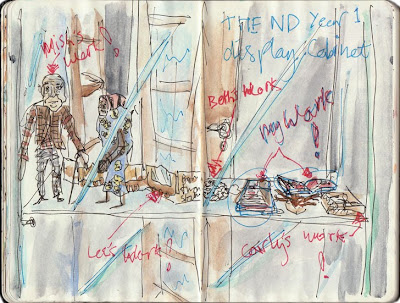 THE ND Year 1
display Cabinet
Mish's
work!
Beth's Work
my work
!
Lee's Work!
Carly's work
!